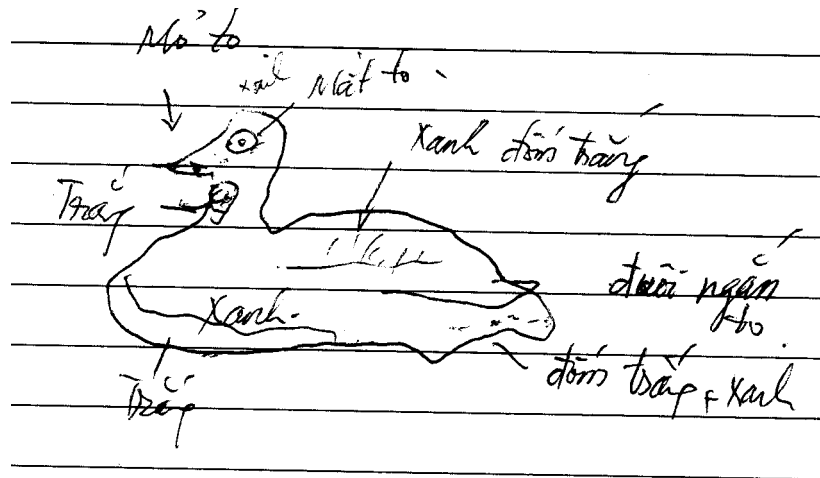 Mỏ to
xanh Mắt to
Xanh đốm trắng
Trắng
đuôi ngắn
to
Xanh
đốm trắng + Xanh
Trắng